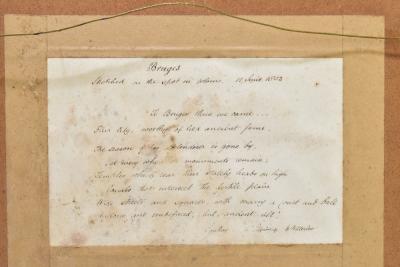 Bruges
Sketched on the spot in
To Bruges then we came
Fair city, worthy of her ancient fame.
The season of her splendour is gone by,
Yet every where monuments remain;
Temples which rear their stately heads on high
Canals that intersect the fertile plain
Wide streets and squares, with many a court and hall
Spacious and undefaced, but ancient all.